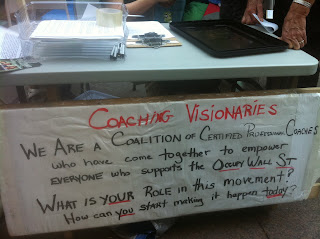 COACHING VISIONARIES
WE ARE A COALITION OF CERTIFIED PROFESSIONAL COACHES
who have come together to empower
EVERYONE who supports the OCCUPY WALL ST
WHAT IS YOUR ROLE in this movement?
How can you start making it happen today?